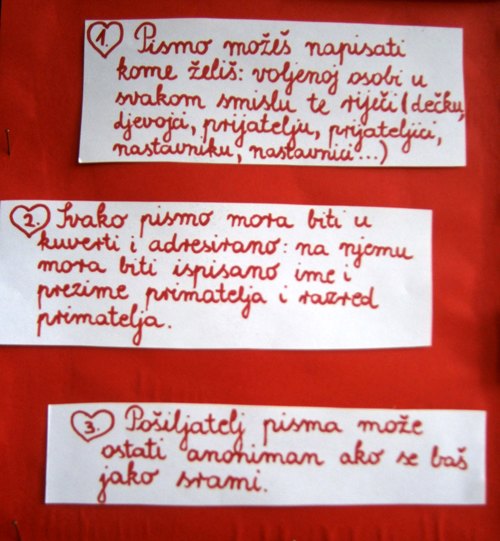 1. Pismo možeš napisati
kome želiš: voljenoj osobi u
svakom smislu te riječi (dečku,
djevojci, prijatelju, prijateljici,
nastavniku, nastavnici...)
2. Svako pismo mora biti u
kuverti i adresirano: na njemu
mora biti ispisano ime i
prezime primatelja i razred
primatelja.
3. Pošiljatelj pisma može
ostati anoniman ako se baš
jako srami.